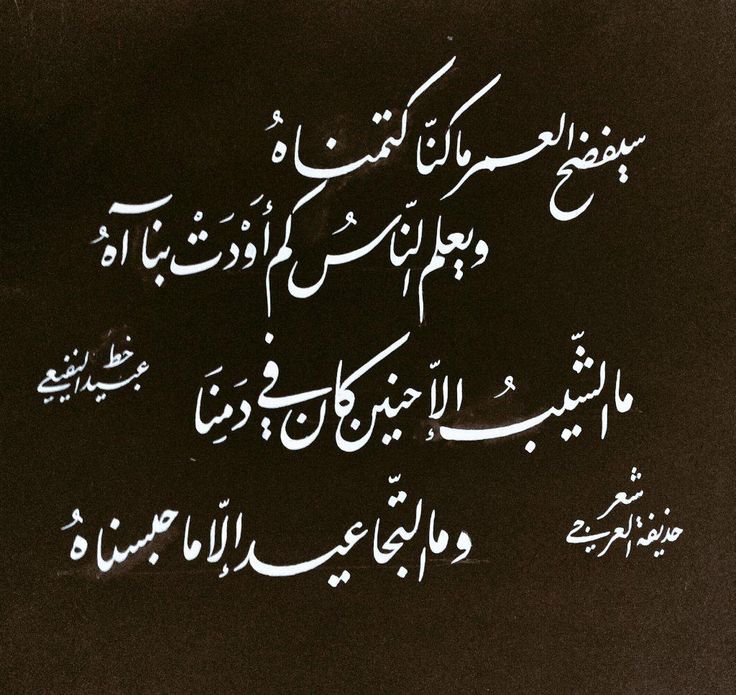 سيفضح العمر ما كنّا كتمناهُ
ويعلم النّاسُ كم أَوْدَتْ بنا آهُ
ما الشّيبُ إلاّ حنين كان في دَمِنَا
وما التّجاعيد إلّا ما حبسناهُ
خط
عبيد النفيعي
شعر
حذيفة العرجي